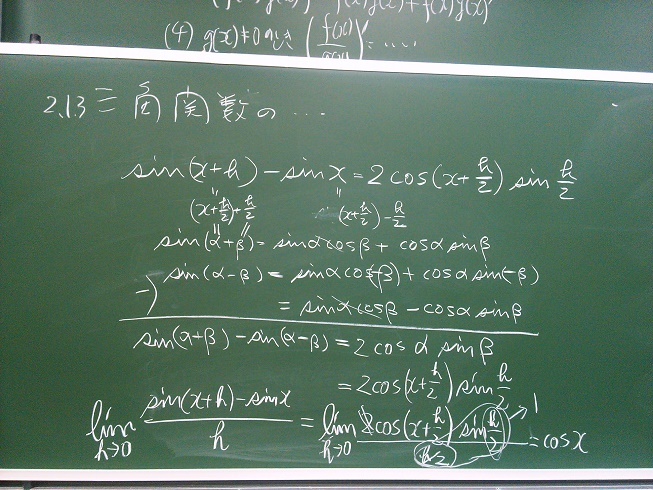 g(x) + f(x)g(x)'
(4) g(x)≠0 (f(x)/g(x))' = ....
2.1.3 三角関数の...
sin(x+h) - sin x = 2cos(x+h/2) sin h/2
(x+h/2)+h/2 (x+h/2)-h/2
sin(α+β) = sinαcosβ + cosα sinβ
-) sin(α-β) = sinαcos(-β) + cosα sin(-β)
= sinαcosβ - cosα sinβ
sin(α+β) - sin(α-β) = 2 cosα sinβ
= 2cos(x+h/2) sin h/2
lim h→0 (sin(x+h) - sin x)/h = lim h→0 (2cos(x+h/2) sin h/2)/(h/2·2) → 1 = cos x